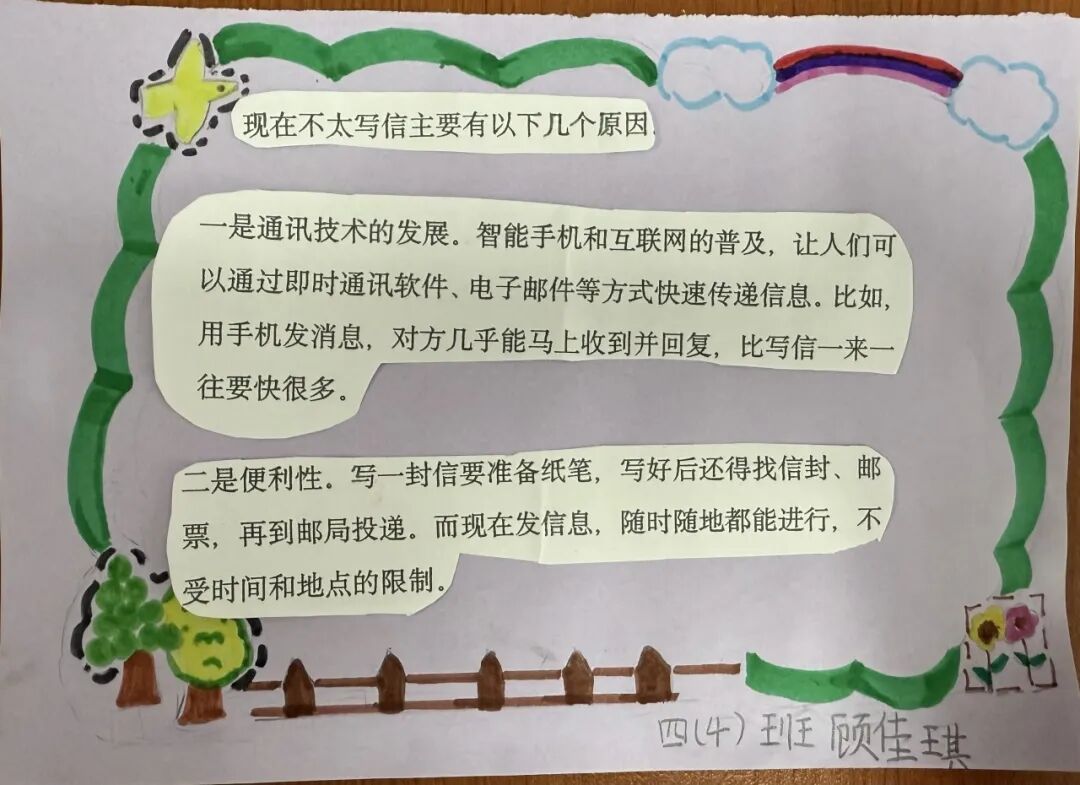 现在不太写信主要有以下几个原因.
一是通讯技术的发展。智能手机和互联网的普及，让人们可
以通过即时通讯软件、电子邮件等方式快速传递信息。比如，
用手机发消息，对方几乎能马上收到并回复，比写信一来一
往要快很多。
二是便利性。写一封信要准备纸笔，写好后还得找信封、邮
票，再到邮局投递。而现在发信息，随时随地都能进行，不
受时间和地点的限制。
四(4)班 顾佳琪